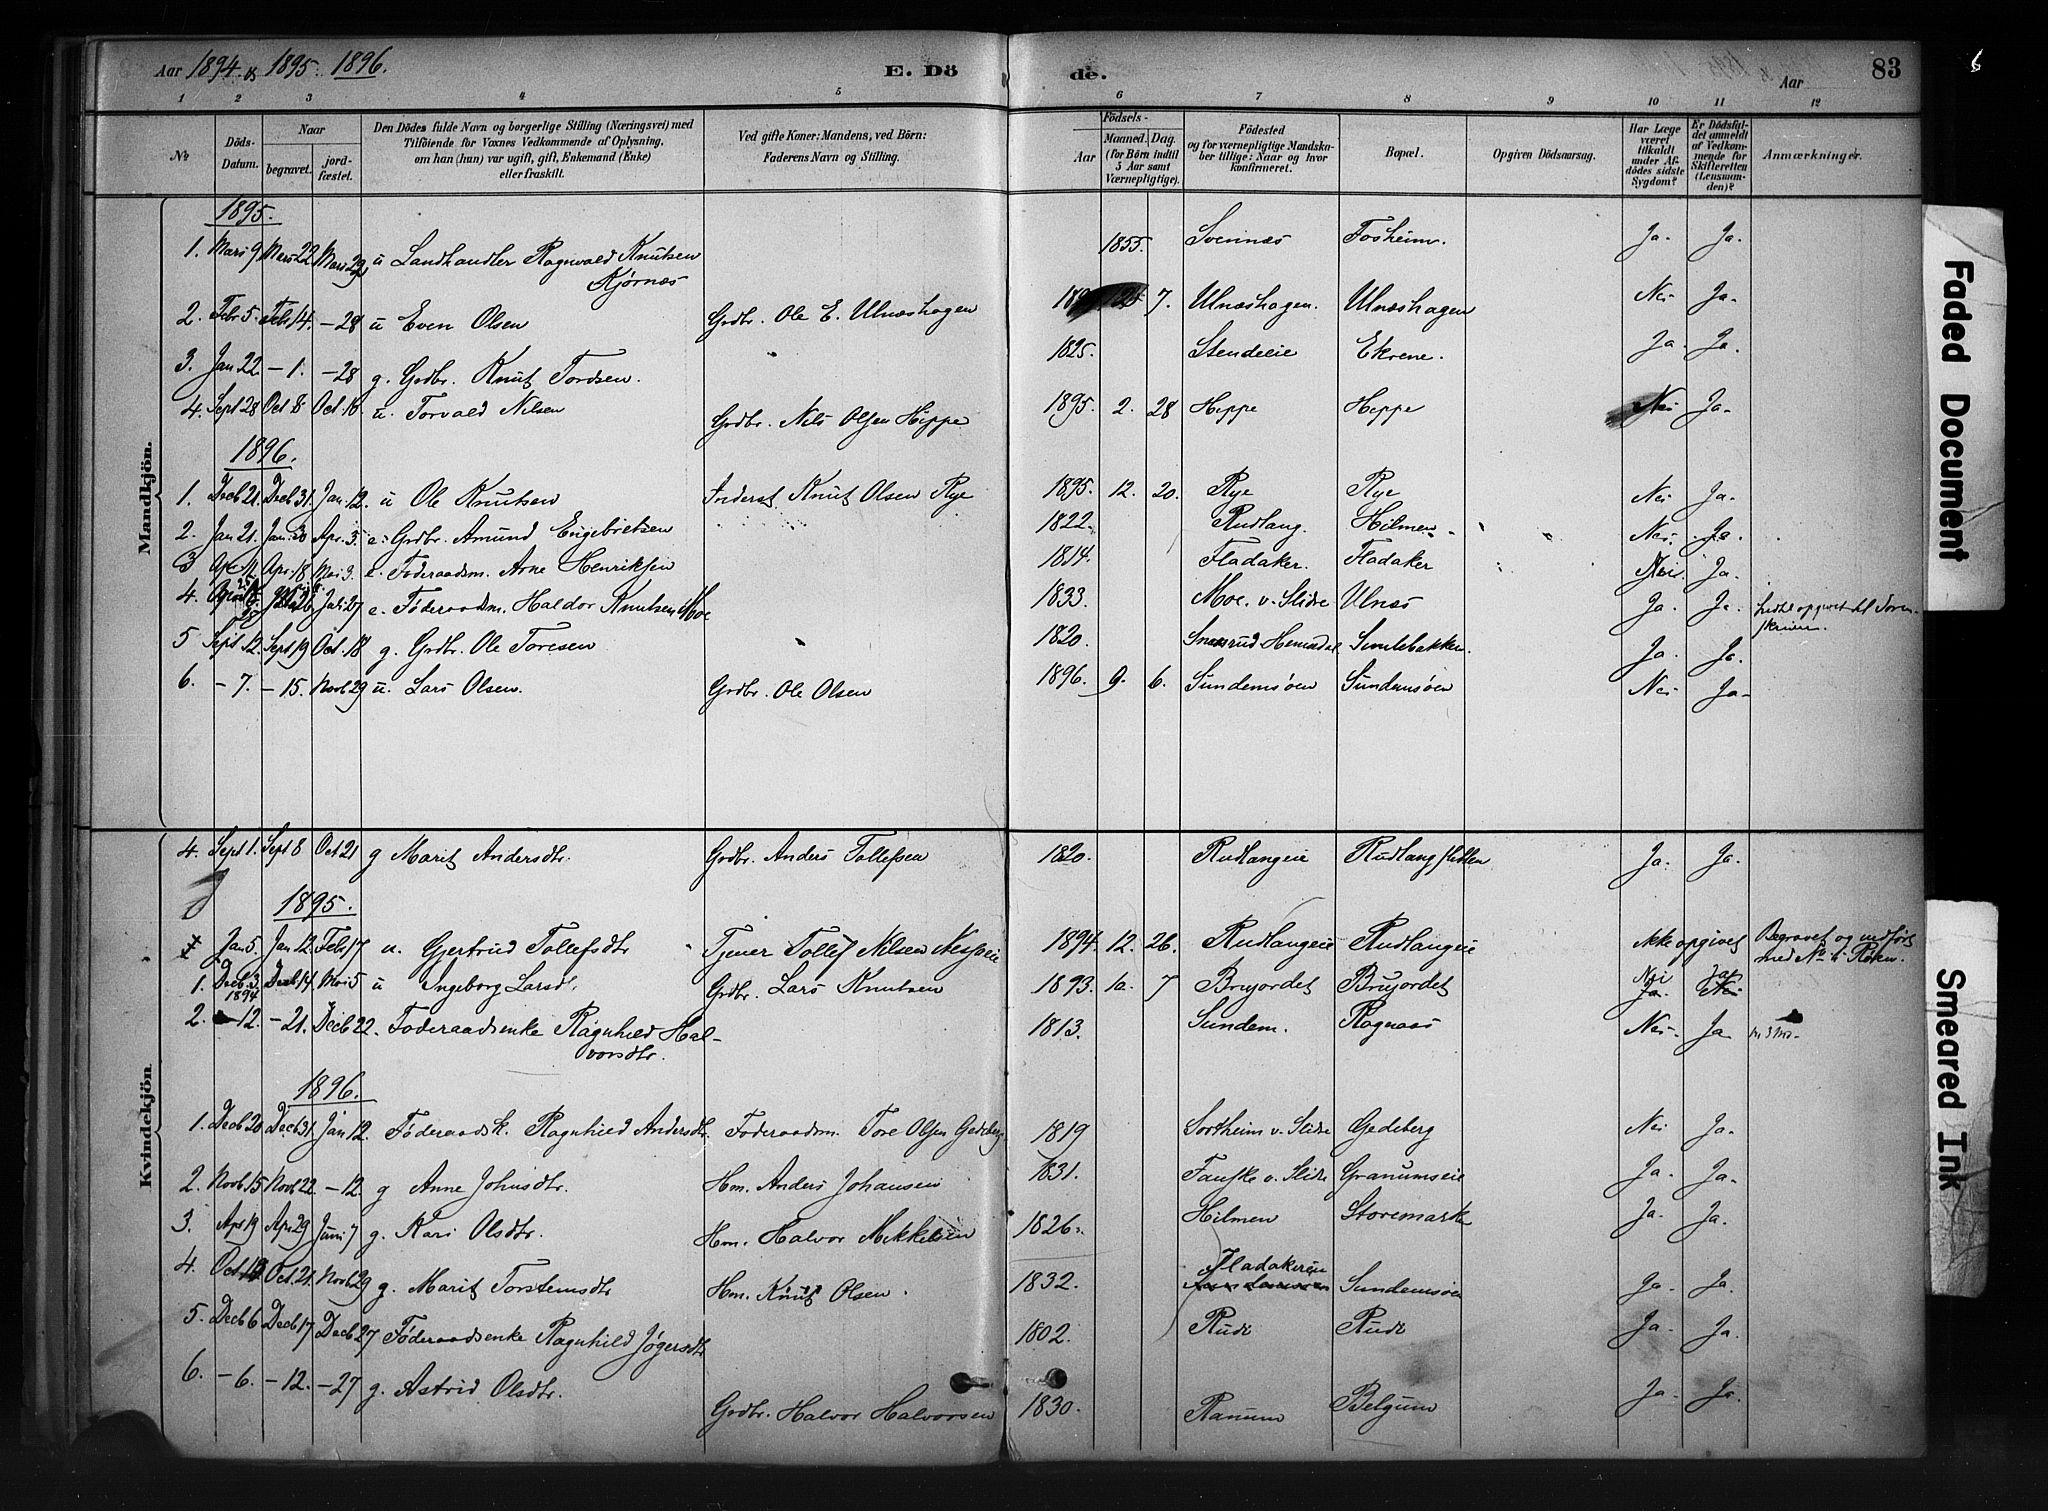 Aar 1894 og 1895. 1896. E. Dö de. Aar 83
1 2 3 4 5 6 7 8 9 10 11 12
No. Döds-Datum. Naar begravet. jordfæstet. Den Dödes fulde Navn og borgerlige Stilling (Næringsvei) med Tilföiende for Voxnes Vedkommende af Oplysning, om han (hun) var ugift, gift, Enkemand (Enke) eller fraskilt. Ved gifte Koner: Mandens, ved Börn: Faderens Navn og Stilling. Födsels- Aar Maaned. Dag. (for Börn indtil 5 Aar samt Værnepligtige). Födested og for værnepligtige Mandskaber tillige: Naar og hvor konfirmeret. Bopæl. Opgiven Dödsaarsag. Har Læge været tilkaldt under Afdödes sidste Sygdom? Er Dödsfaldet anmeldt af Vedkommende for Skifteretten (Lensmanden)? Anmærkninger.
Mandkjön.
1895.
1. Mars 9 Mars 22 Mars 29 u Landhandler Ragnvald Knutsen 1855. Svennæs Fosheim. Ja. Ja.
Kjørnæs
2. Febr 5. Febr 14. -28 u Even Olsen Grdbr. Ole E. Ulnæshagen 7. Ulnæshagen. Ulnæshagen Nei Ja-
3. Jan 22 -1. -28 g. Grdbr. Knut Tordsen. 1825. Stendeeie Ekrene. Ja. Ja.
4. Sept 28 Oct 8. Oct. 18 u. Torvald Nilsen Grdbr. Nils Olsen Hippe 1895. 2. 28 Heppe Heppe Nei Ja-
1896.
1. Decb 21. Decb 31. Jan. 12. u Ole Knutsen Inderst Knut Olsen Rye 1895. 12. 20. Rye Rye Nei Ja-
2. Jan 21. Jan. 30 Apr. 5. e. Grdbr. Amund Engebretsen 1822. Rudlang. Hilmen. Nei. Ja.
3 Apr. 18 Mai 3. e. Føderaadsm. Arne Henriksen 1814. Fladaker. Fladaker Nei. Ja.
4. Juli 27 e. Føderaadsm. Haldor Knutsen Moe 1833. Moe. v. Slidre Ulnæs Ja. Ja. opgivet til Soren-
skriver.
5 Sept 12. Sept 19 Oct. 18 g. Grdbr. Ole Toresen 1820. Hemsedal Simlebakken. Ja. Ja.
6. -7. -15. Novb 29 u. Lars Olsen. Grdbr. Ole Olsen 1896. 9. 6. Sundemsøen Sundemsøen Nei Ja-
Kvindekjön.
4. Sept 1. Sept 8 Oct 21 g Marit Andersdtr. Grdbr. Anders Tollefsen 1820. Rudlangeie Rudlang Ja. Ja.
1895.
Jan 5. Jan 12. Febr 17 u. Gjertrud Tollefsdtr Tjener Tollef Nilsen 1894. 12. 26. Rudlangeie Rudlangeie Ikke opgivet Begravet og indført
med No.
1. Decb. 3. 1894 Decb 14. Mai 5 u Ingeborg Larsdt. Grdbr. Lars Knutsen 1893. 10. 7 Brujordet Brujordet Nei Ja. Ja Nei
2. 12. -21. Decb 22. Føderaadsenke Ragnhild Hal- 1813. Sundem. Ragnaas Nei- Ja
vorsdtr.
1896.
1. Decb 20 Decb 31. Jan 12. Føderaadsk. Ragnhild Andersdtr. Føderaadsm. Tore Olsen Gedeberg 1819 Sortheim v. Slidre Gedeberg Nei Ja.
2. Novb 15 Novb. 22 -12. g Anne Johnsdtr. Hm. Anders Johansen 1831. Fauske v. Slidre Granumseie Ja. Ja.
3. Apr 19 Apr. 29 Juni 7 g. Kari Olsdtr. Hm. Halvor Mikkelsen 1826. Hilmen Storemarke Ja. Ja.
4. Oct. Oct. 21. Novb. 29 g. Marit Torstensdtr Hm. Knut Olsen. 1832. Fladakereie Sundemsøen Ja. Ja.
5. Decb 6 Decb 17 Decb 27 Føderaadsenke Ragnhild Jøgersdtr 1802. Rudi Rudi Ja. Ja.
6. -6. -12. -27 g. Astrid Olsdtr. Grdbr. Halvor Halvorsen 1830. Ranum Belgum Ja. Ja.
Faded Document
Smeared Ink